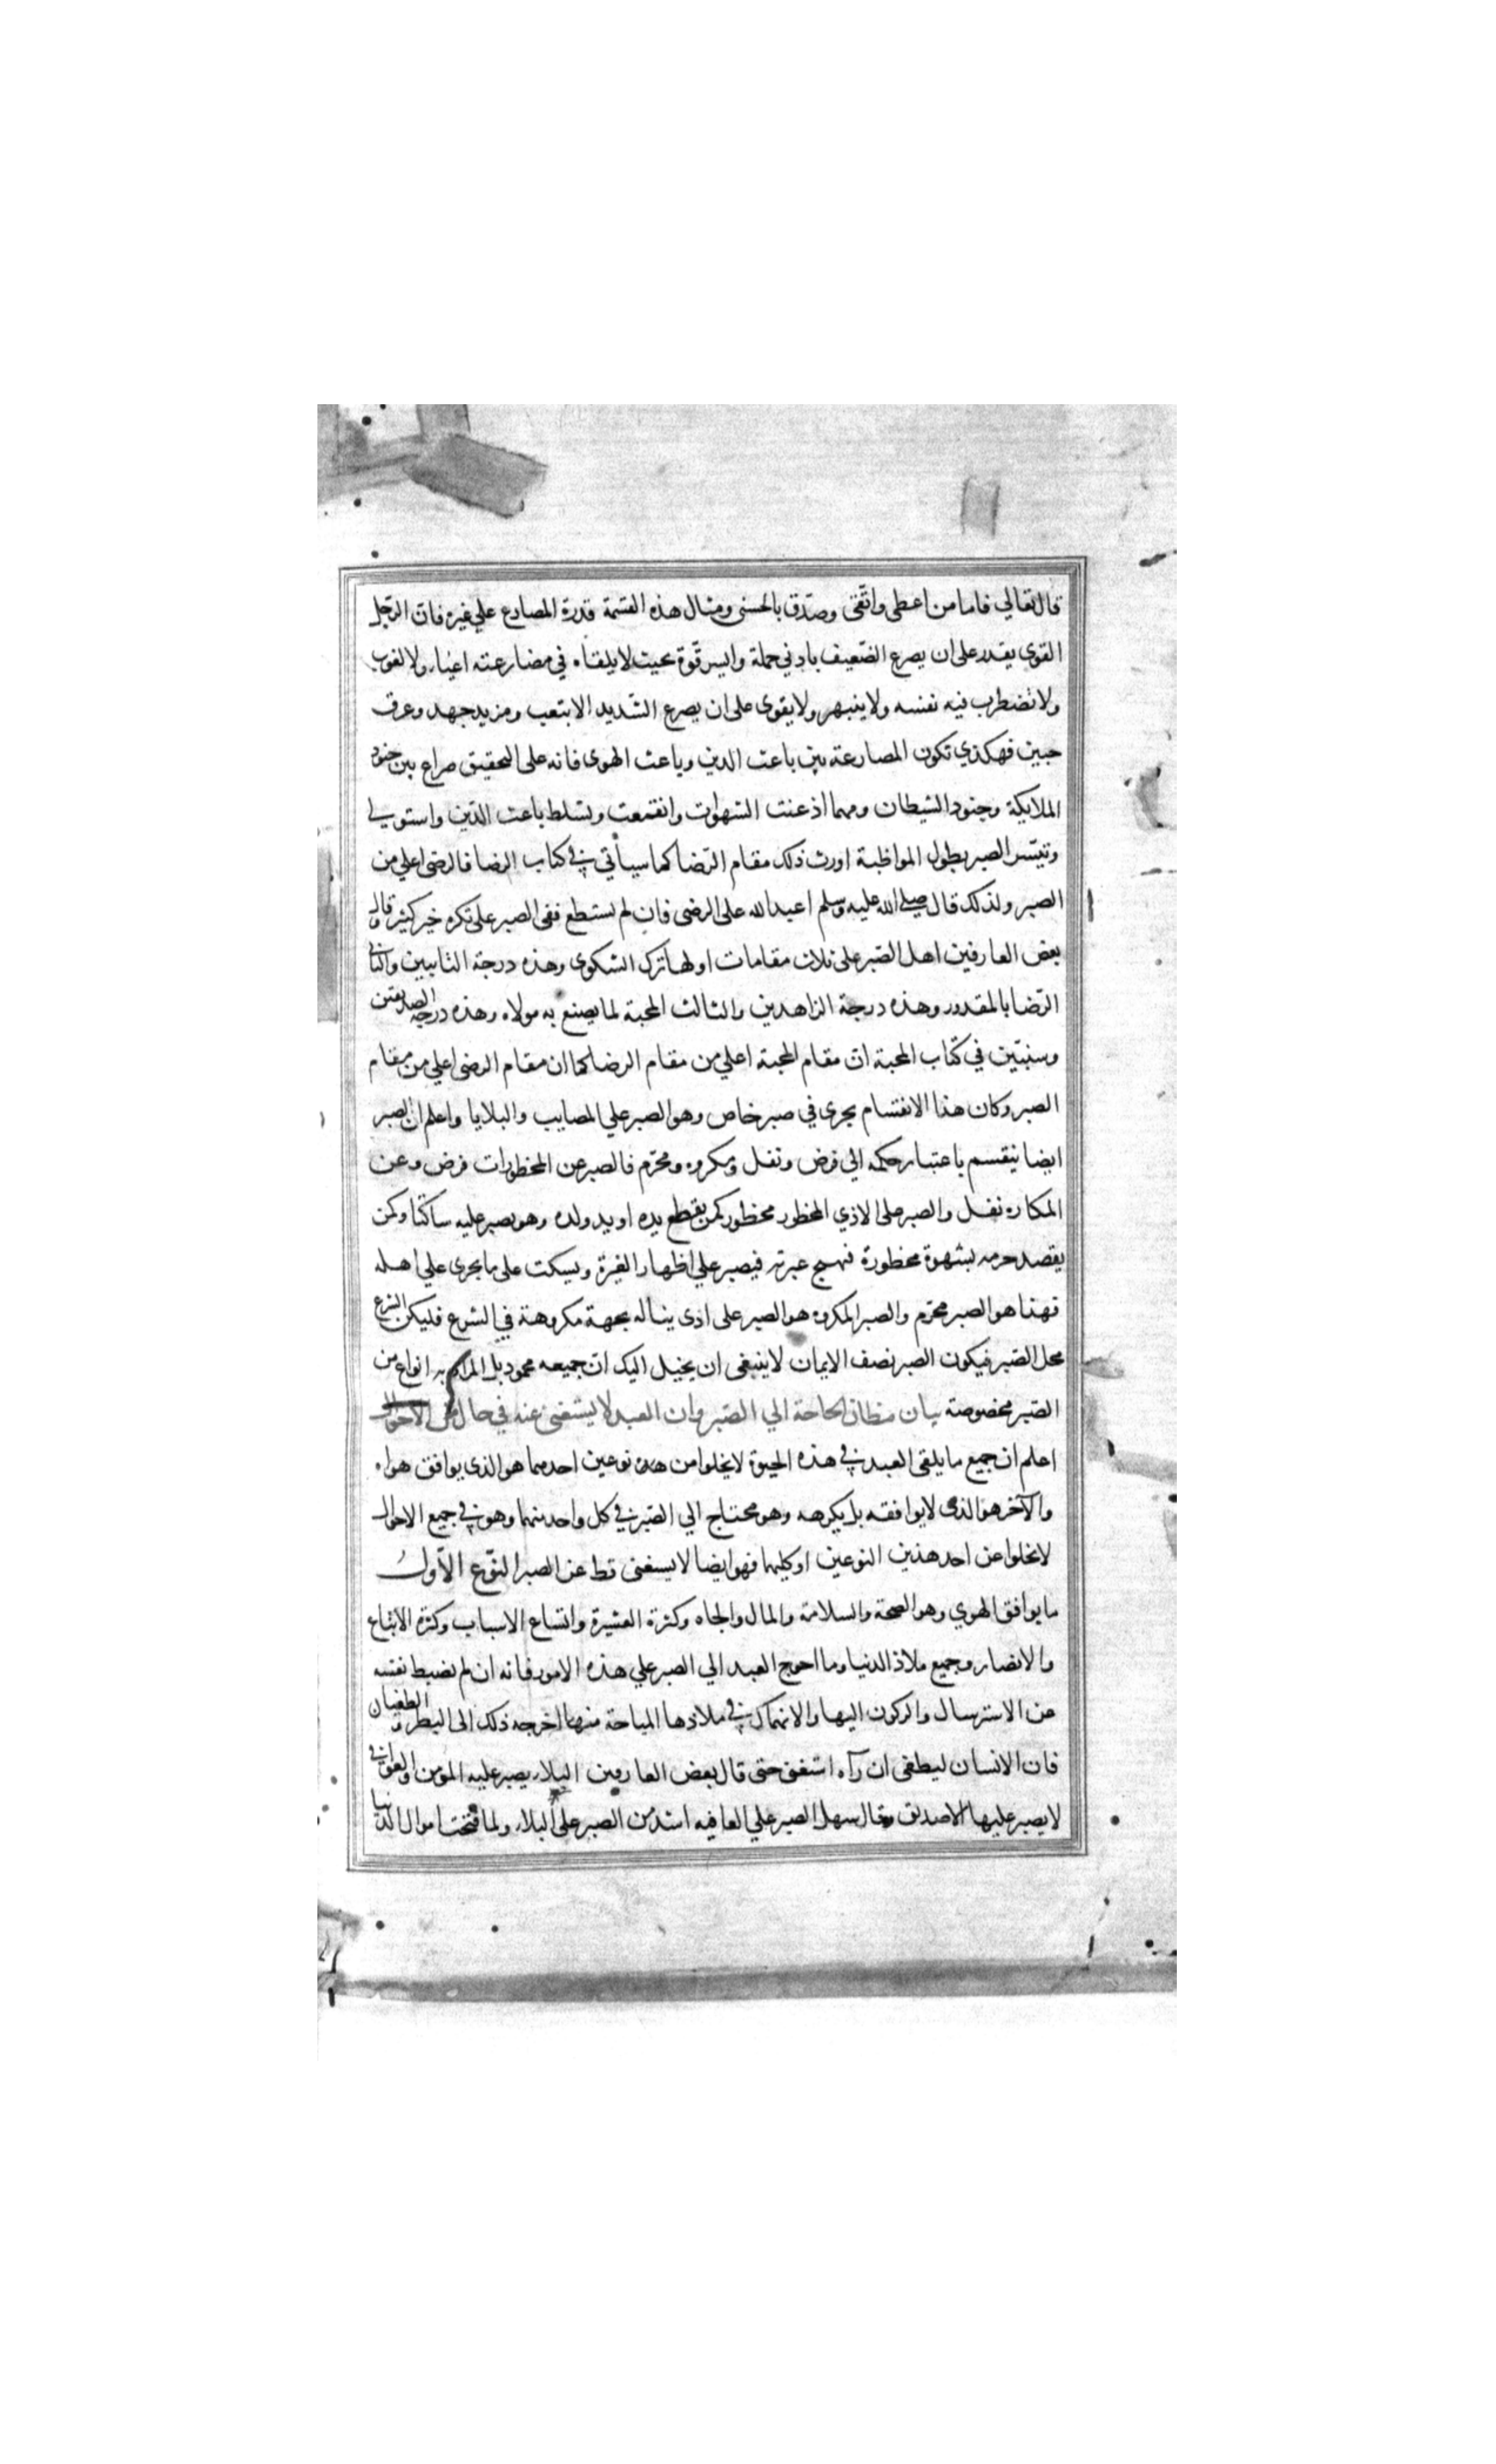 قال تعالي فاما من اعطى واتقى وصدّق بالحسنى ومثال هذه القسمة قدرة المصارع علي غيره فان الرجل
القوي يقدر على ان يصرع الضعيف بادني حملة وايسر قوّة بحيث لا يلقاه في مصارعته اعياء ولا لغوب
ولا تضطرب فيه نفسه ولا ينبهر ولا يقوى على ان يصرع الشديد الا بتعب ومزيد جهد وعرق
جبين فهكذي تكون المصارعة بين باعث الدين وباعث الهوى فانه على التحقيق صراع بين جنود
الملايكة وجنود الشيطان ومهما اذعنت الشهوات وانقمعت وتسلط باعث الدّين واستولى
وتيسّر الصبر بطول المواظبة اورث ذلك مقام الرّضا كما سيأتي في كتاب الرضا فالرضى اعلي من
الصبر ولذلك قال صلى الله عليه وسلم اعبد الله على الرضى فان لم تستطع ففى الصبر على تكره خير كثير وقال
بعض العارفين اهل الصّبر على ثلاث مقامات اولها ترك الشكوى وهذه درجة التايبين والثاني
الرّضا بالمقدور وهذه درجة الزاهدين والثالث المحبة لما يصنع به مولاه وهذه درجة الصديقين
وسنبيّن في كتاب المحبة انّ مقام المحبة اعلي من مقام الرضا كما ان مقام الرضى اعلي من مقام
الصبر وكان هذا الانقسام يجرى في صبر خاص وهو الصبر علي المصايب والبلايا واعلم ان الصبر
ايضا ينقسم باعتبار حكمه الي فرض ونفل ومكروه ومحرّم فالصبر عن المحظورات فرض وعن
المكاره نفل والصبر على الاذي المحظور محظور كمن يقطع يده او يد ولده وهو يصبر عليه ساكتا وكمن
يقصد حرمه بشهوة محظورة فيهيج غيرته فيصبر علي اظهار الغيرة ويسكت على ما يجرى علي اهله
فهذا هو الصبر محرّم والصبر المكروه هو الصبر على اذى يناله بجهة مكروهة في الشرع فليكن الشرع
محل الصّبر فيكون الصبر نصف الايمان لا ينبغى ان يخيل اليك انّ جميعه محمود بل المراد به انواع من
الصّبر مخصوصة بيان مظان الحاجة الي الصّبر وان العبد لا يستغنى عنه في حال من الاحوال
اعلم ان جميع ما يلقى العبد في هذه الحيوة لا يخلوا من هذه نوعين احدهما هو الذى يوافق هواه
والآخر هو الذى لا يوافقه بل يكرهه وهو محتاج الي الصّبر في كل واحد منهما وهو في جميع الاحوال
لا يخلوا عن احد هذين النوعين او كليهما فهو ايضا لا يستغنى قط عن الصبر النّوع الاّول
ما يوافق الهوي وهو الصحة والسلامة والمال والجاه وكثرة العشيرة واتساع الاسباب وكثرة الاتباع
والانصار وجميع ملاذ الدنيا وما احوج العبد الي الصبر علي هذه الامور فانه ان لم يضبط نفسه
عن الاسترسال والركون اليها والانهماك في ملاذها المباحة منها اخرجه ذلك الى البطر والطغيان
فان الانسان ليطغى ان رآه استغنى حتى قال بعض العارفين البلاء يصبر عليه المؤمن والعوافي
لا يصبر عليها الا صديق وقال سهل الصبر علي العافيه اشد من الصبر على البلاء ولما فتحت اموال الدنيا